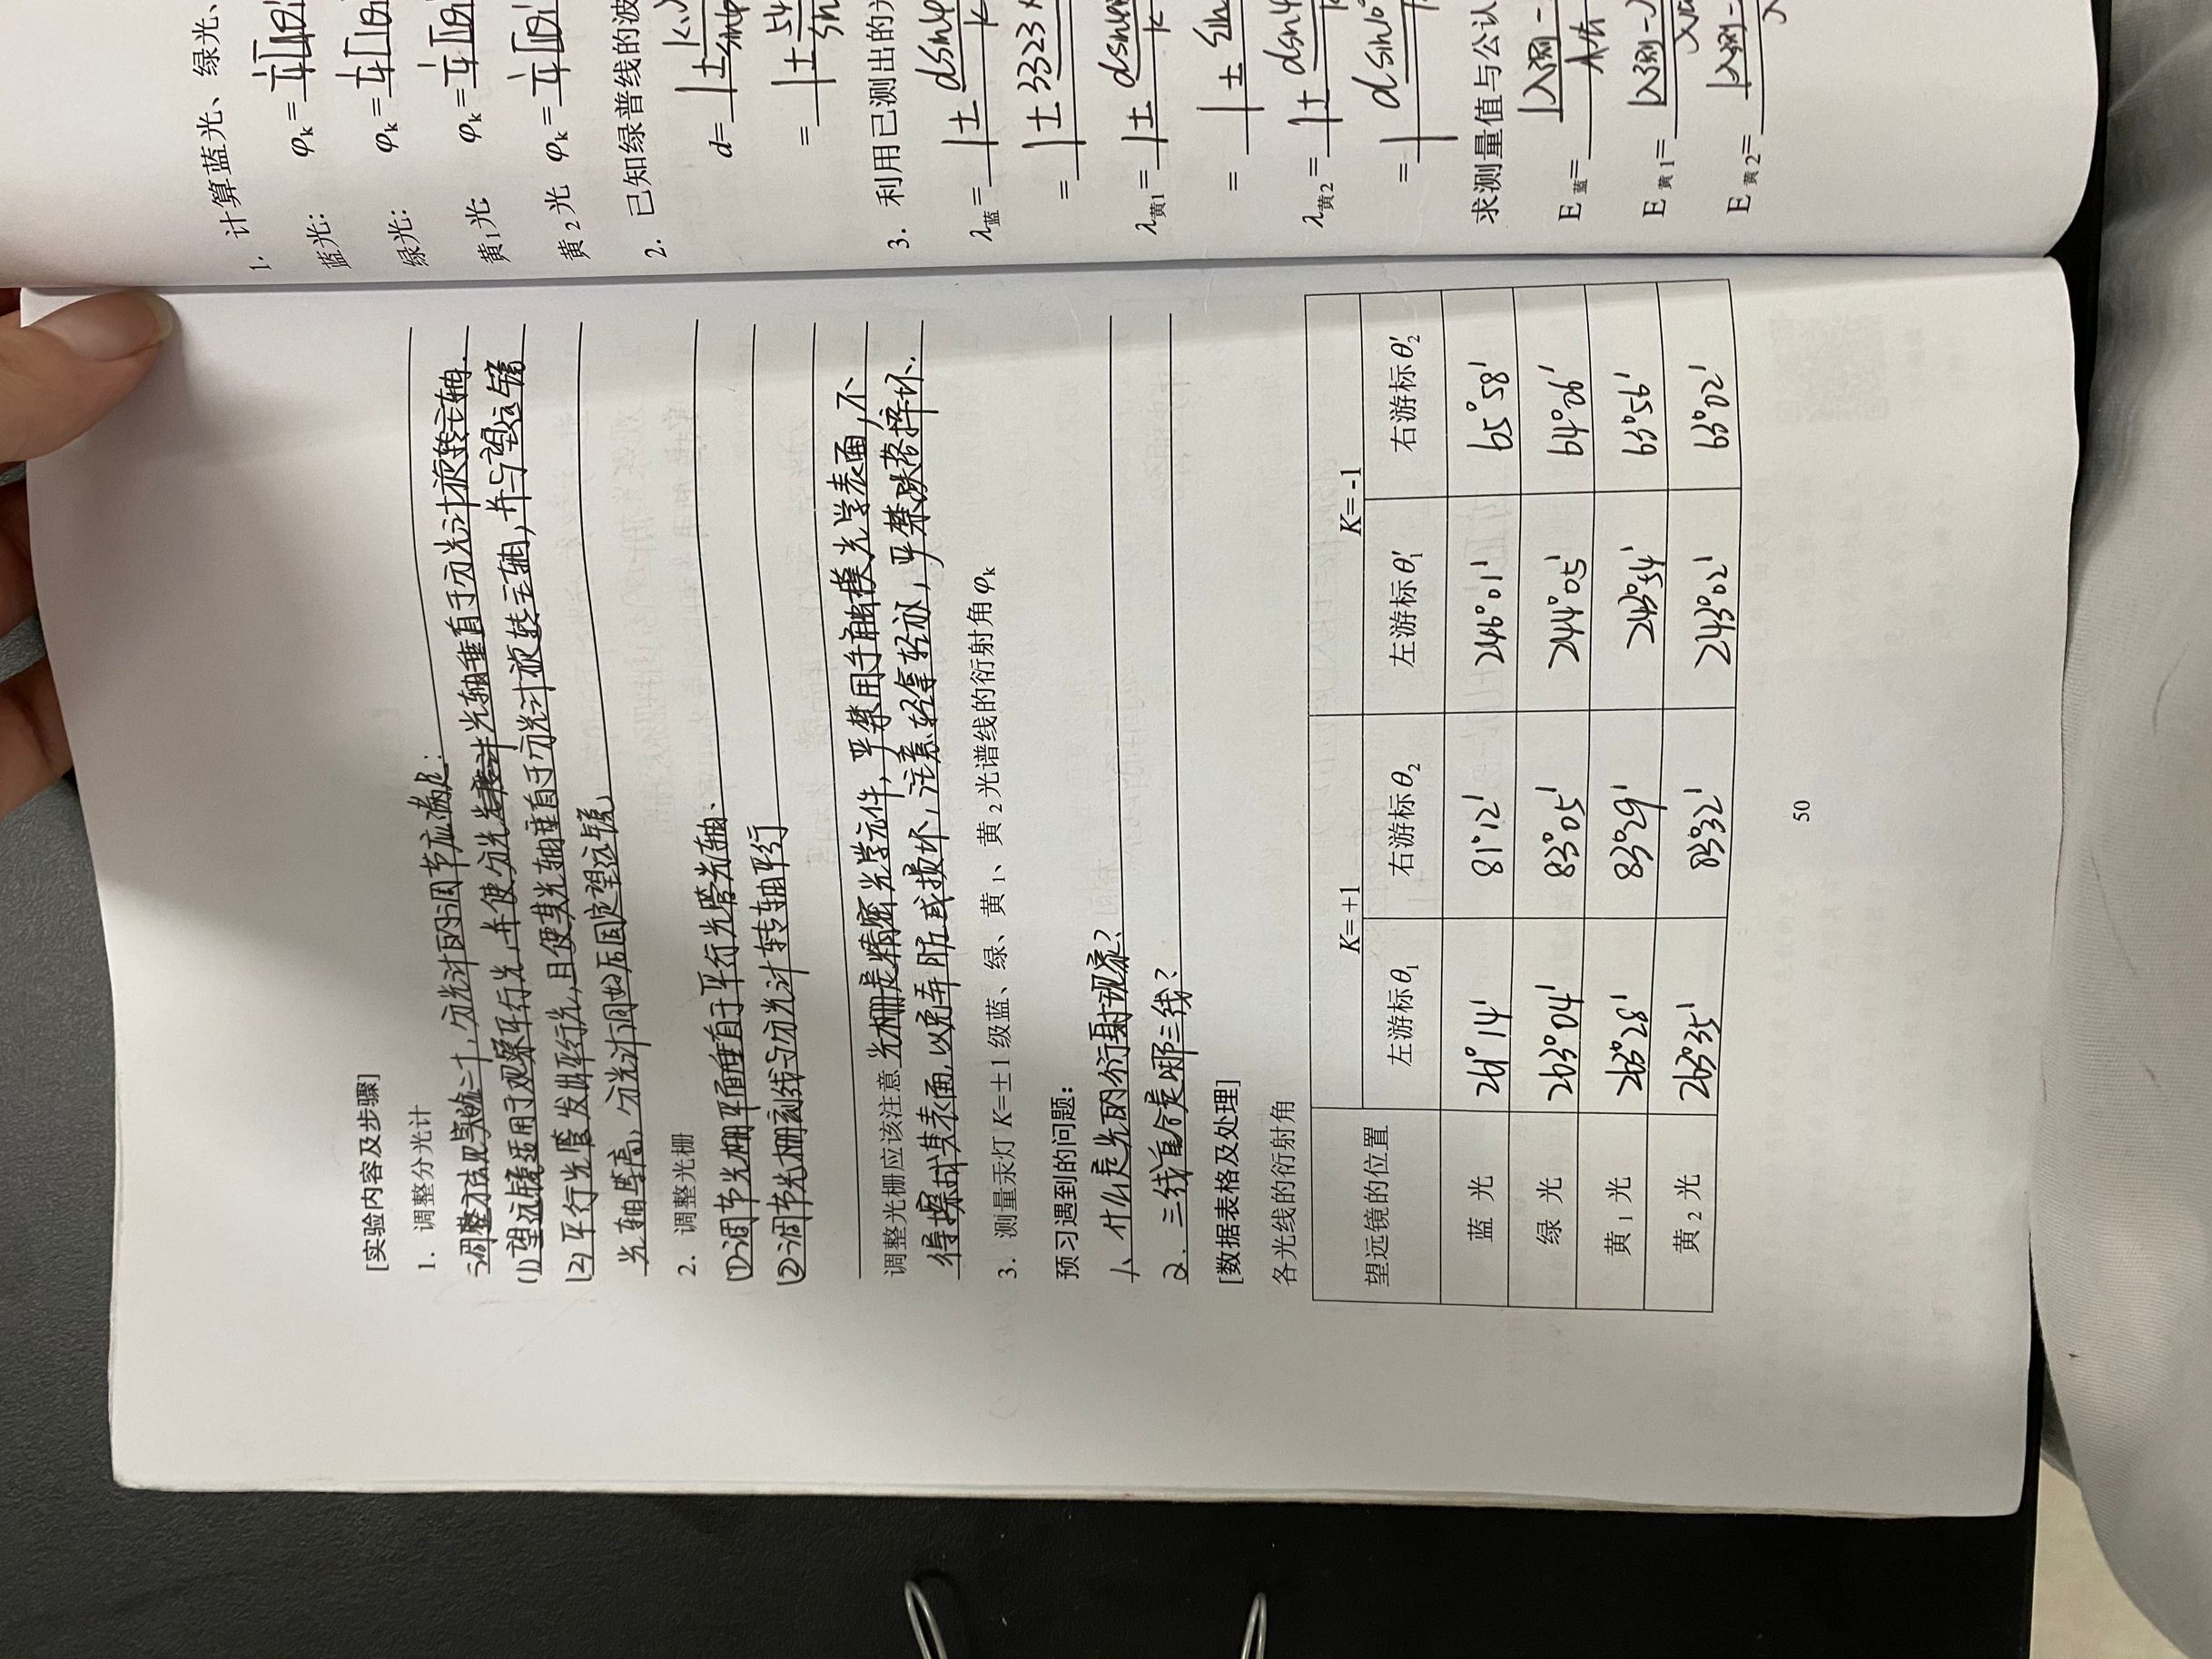 [实验内容及步骤]
1. 调整分光计
调整方法见实验二十,分光计的调节应满足:
(1)望远镜适用于观察平行光,并使分光光轴垂直于分光计旋转主轴.
(2)平行光管发出平行光,且使其光轴垂直于分光计旋转主轴,并与望远镜
光轴等高,分光计调好后固定望远镜,
2. 调整光栅
①调节光栅平面垂直于平行光管光轴.
②调节光栅刻线与分光计转轴平行
调整光栅应该注意 光栅是精密光学元件,严禁用手触摸光学表面,不
得擦拭其表面,以免弄脏或损坏,注意轻拿轻放,严禁跌落摔坏.
3. 测量汞灯 K=±1 级蓝、绿、黄1、黄2光谱线的衍射角φk
预习遇到的问题:
1、什么是光的衍射现象?
2. 三线重合是哪三线?
[数据表格及处理]
各光线的衍射角
望远镜的位置 K= +1 K= -1
左游标θ1 右游标θ2 左游标θ′1 右游标θ′2
蓝 光 261°14′ 81°12′ 246°01′ 65°58′
绿 光 263°04′ 83°05′ 244°05′ 64°06′
黄1光 263°28′ 83°29′ 243°54′ 63°56′
黄2光 263°35′ 83°32′ 243°02′ 63°02′
50
1. 计算蓝光、绿光、
蓝光: φk= 1/4[|θ1′
绿光: φk= 1/4[|θ1
黄1光 φk= 1/4[|θ1
黄2光 φk= 1/4[|θ1′
2. 已知绿普线的波
d= |±
= |± 54
3. 利用已测出的光
λ蓝= |± dsinφ/k
= |± 3323
λ黄1= |± dsinφ/k
= |± sin
λ黄2= |± dsinφ
= | dsin10°
求测量值与公认
E蓝= |λ测-
E黄1= |λ测-λ
E黄2= |λ测-